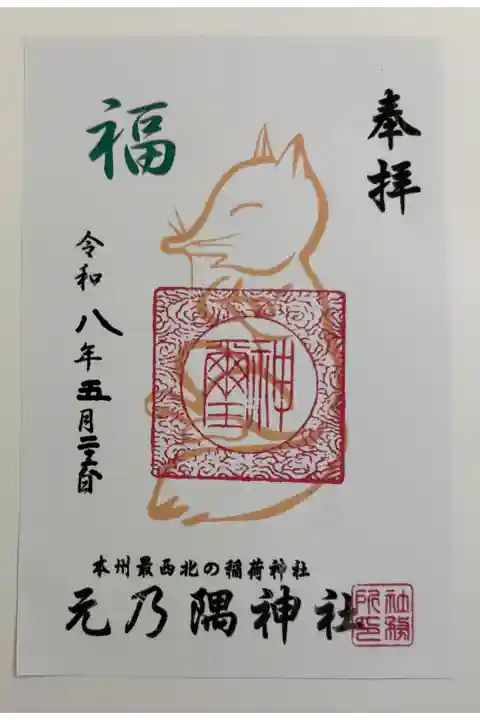 奉拝
福
令和八年五月二日
神璽
本州最西北の稲荷神社
元乃隅神社
社務
所印